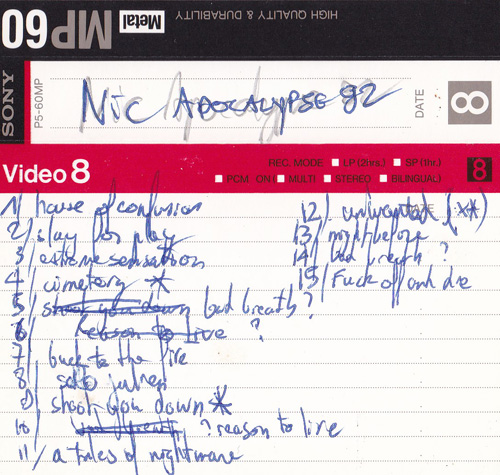 HIGH QUALITY & DURABILITY
MP60 Metal
SONY P5-60MP
Nic APOCALYPSE 92
DATE
8
Video 8
REC. MODE LP (2hrs.) SP (1hr.)
PCM ON MULTI STEREO BILINGUAL
8
1/ house of confusion
2/ slay for play
3/ extreme sensation
4/ cimetery *
5/ shoot you down bad breath?
6/ Reason to live ?
7/ back to the fire
8/ solo julien
9/ shoot you down *
10/ ? reason to live
11/ a tales of nightmare
12/ unwanted (**)
13/ night before
14/ bad breath ?
15/ Fuck off and die